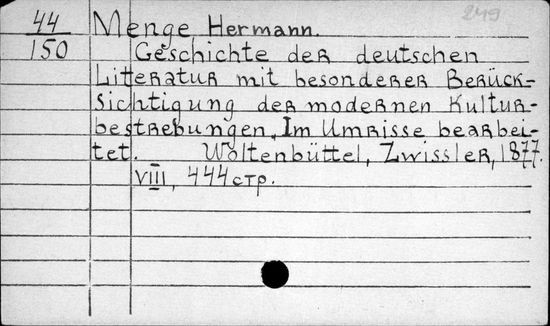 249
44 Menge Hermann.
150 Geschichte der deutschen
Litteratur mit besonderer Berück-
sichtigung der modernen Kultur-
bestrebungen. Im Umrisse bearbei-
tet. Woltenbüttel, Zwissler, 1877.
VIII, 444 стр.